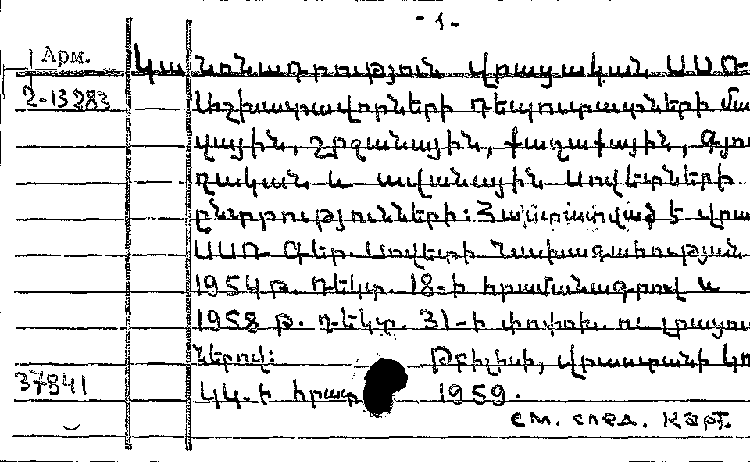 - 1 -
Арм. Կանոնադրություն Վրացական ՍՍՌ-
2-13283 Աշխատավորների դեպուտատների մա
վային, շրջանային, քաղաքային, գյու
ղական և ավանային Սովետների
ընտրությունների: Հաստատված է Վրա
ՍՍՌ Գեր. Սովետի Նախագահության
1954 թ. դեկտ. 18-ի հրամանագրով և
1958 թ. դեկտ. 31-ի փոփոխ. ու լրացու
ներով: Թբիլիսի, Վրաստանի Կո
37841 ԿԿ-ի հրատ 1959.
см. след. карт.